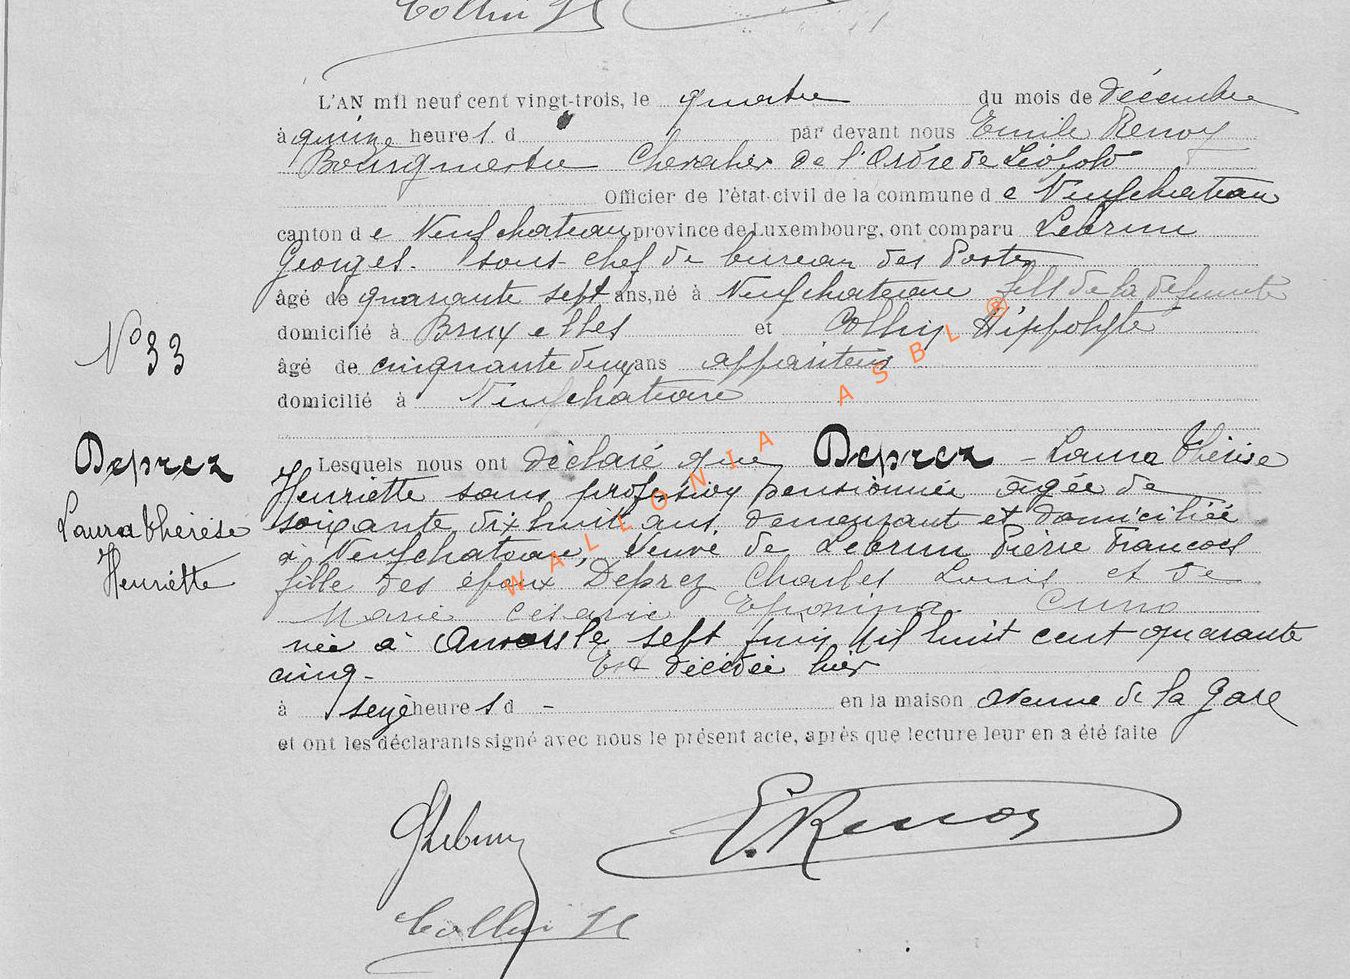 Collin H
L'AN mil neuf cent vingt-trois, le quatre du mois de décembre
à quinze heures d par devant nous Emile Renoy
Bourgmestre Chevalier de l'Ordre de Léopold
Officier de l'état-civil de la commune de Neufchateau
canton de Neufchateau province de Luxembourg, ont comparu Lebrun
Georges. sous chef de bureau des Postes
âgé de quarante sept ans, né à Neufchateau fils de la défunte
domicilié à Bruxelles et Collin Hippolyte
âgé de cinquante deux ans appariteur
domicilié à Neufchateau
N° 33
Deprez
Laura Thérèse
Henriette
Lesquels nous ont déclaré que Deprez - Laura Thérèse
Henriette sans profession pensionnée âgée de
soixante dix huit ans demeurant et domiciliée
à Neufchateau, Veuve de Lebrun Pierre François
fille des époux Deprez Charles Louis et de
Marie Césarie Eponina Cuno
née à le sept juin Mil huit cent quarante
cinq - Est décédée hier
à seize heures d - en la maison avenue de la Gare
et ont les déclarants signé avec nous le présent acte, après que lecture leur en a été faite
GLebrun E. Renoy
Collin H
WALLONIA ASBL ®